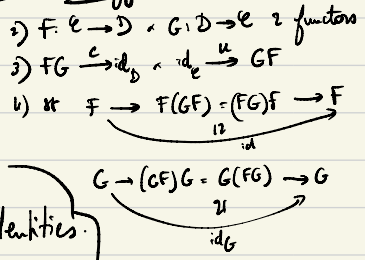 2) F: C → D & G: D → C 2 functors
3) FG →ᶜ id_D & id_C →ᵘ GF
4) st F → F(GF) = (FG)F → F
id
G → (GF)G = G(FG) → G
id_G